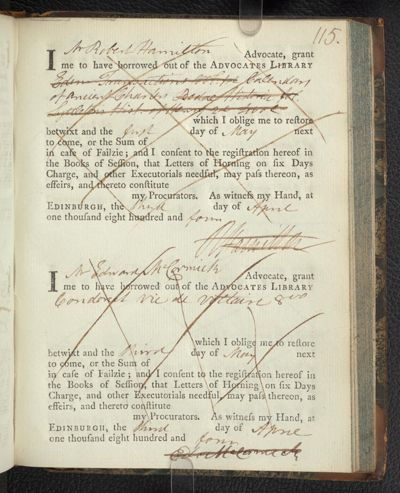 115.
I Mr Robert Hamilton Advocate, grant
me to have borrowed out of the ADVOCATES LIBRARY
Edin Transactions Calendars
of ancient Charters
which I oblige me to restore
betwixt and the first day of May next
to come, or the Sum of
in case of Failzie; and I consent to the registration hereof in
the Books of Session, that Letters of Horning on six Days
Charge, and other Executorials needful, may pass thereon, as
effeirs, and thereto constitute
my Procurators. As witness my Hand, at
EDINBURGH, the third day of April
one thousand eight hundred and four
R Hamilton
I Mr Edward McCormick Advocate, grant
me to have borrowed out of the ADVOCATES LIBRARY
Condorcet vie de Voltaire 8vo
which I oblige me to restore
betwixt and the third day of May next
to come, or the Sum of
in case of Failzie; and I consent to the registration hereof in
the Books of Session, that Letters of Horning on six Days
Charge, and other Executorials needful, may pass thereon, as
effeirs, and thereto constitute
my Procurators. As witness my Hand, at
EDINBURGH, the third day of April
one thousand eight hundred and four
McCormick